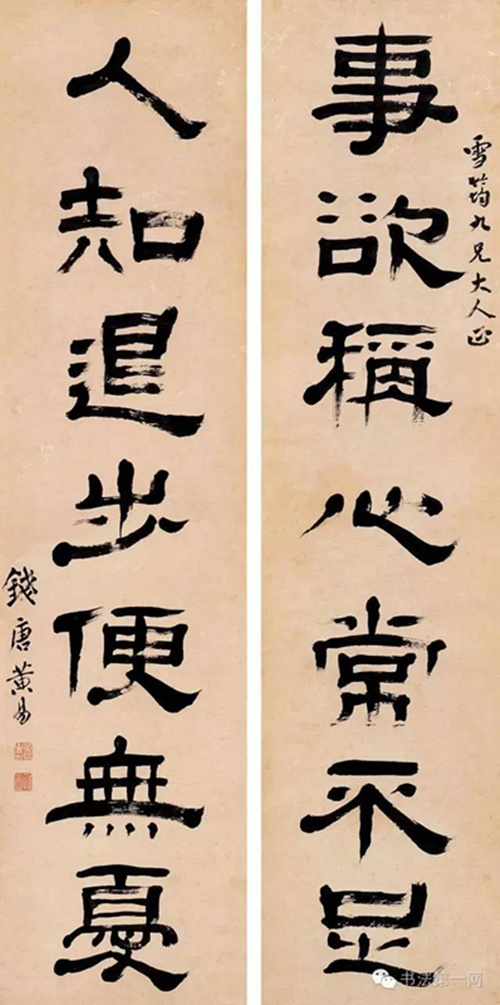 雪筠九兄大人正
事欲稱心常不足
人知退步便無憂
錢唐黃易
书法第一网